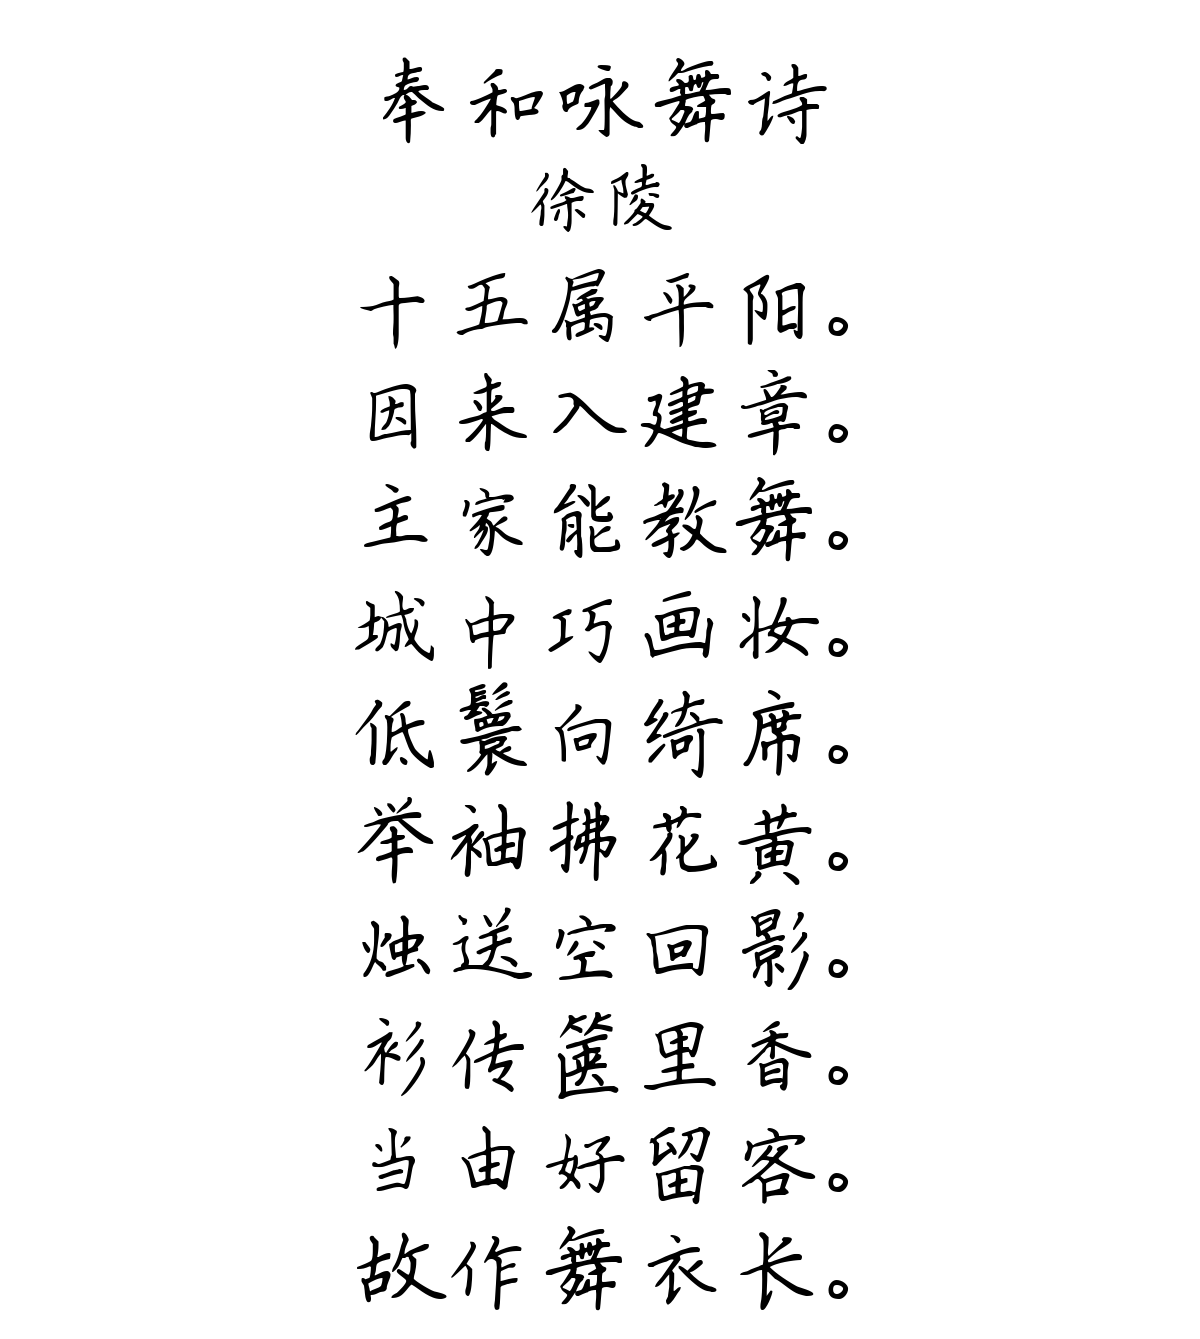 奉和咏舞诗
徐陵
十五属平阳。
因来入建章。
主家能教舞。
城中巧画妆。
低鬟向绮席。
举袖拂花黄。
烛送空回影。
衫传箧里香。
当由好留客。
故作舞衣长。